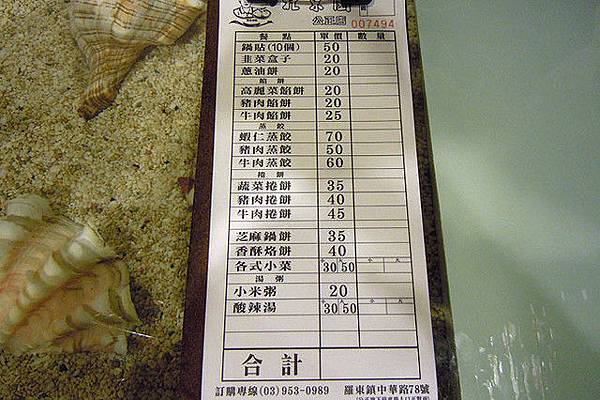 北京園
公正店
007494
餐點 單價 數量
鍋貼(10個) 50
韭菜盒子 20
蔥油餅 20
餡餅
高麗菜餡餅 20
豬肉餡餅 20
牛肉餡餅 25
蒸餃
蝦仁蒸餃 70
豬肉蒸餃 50
牛肉蒸餃 60
捲餅
蔬菜捲餅 35
豬肉捲餅 40
牛肉捲餅 45
芝麻鍋餅 35
香酥烙餅 40
各式小菜 小30 大50 小 大
湯粥
小米粥 20
酸辣湯 小30 大50 小 大
合計
訂購專線(03)953-0989 羅東鎮中華路78號